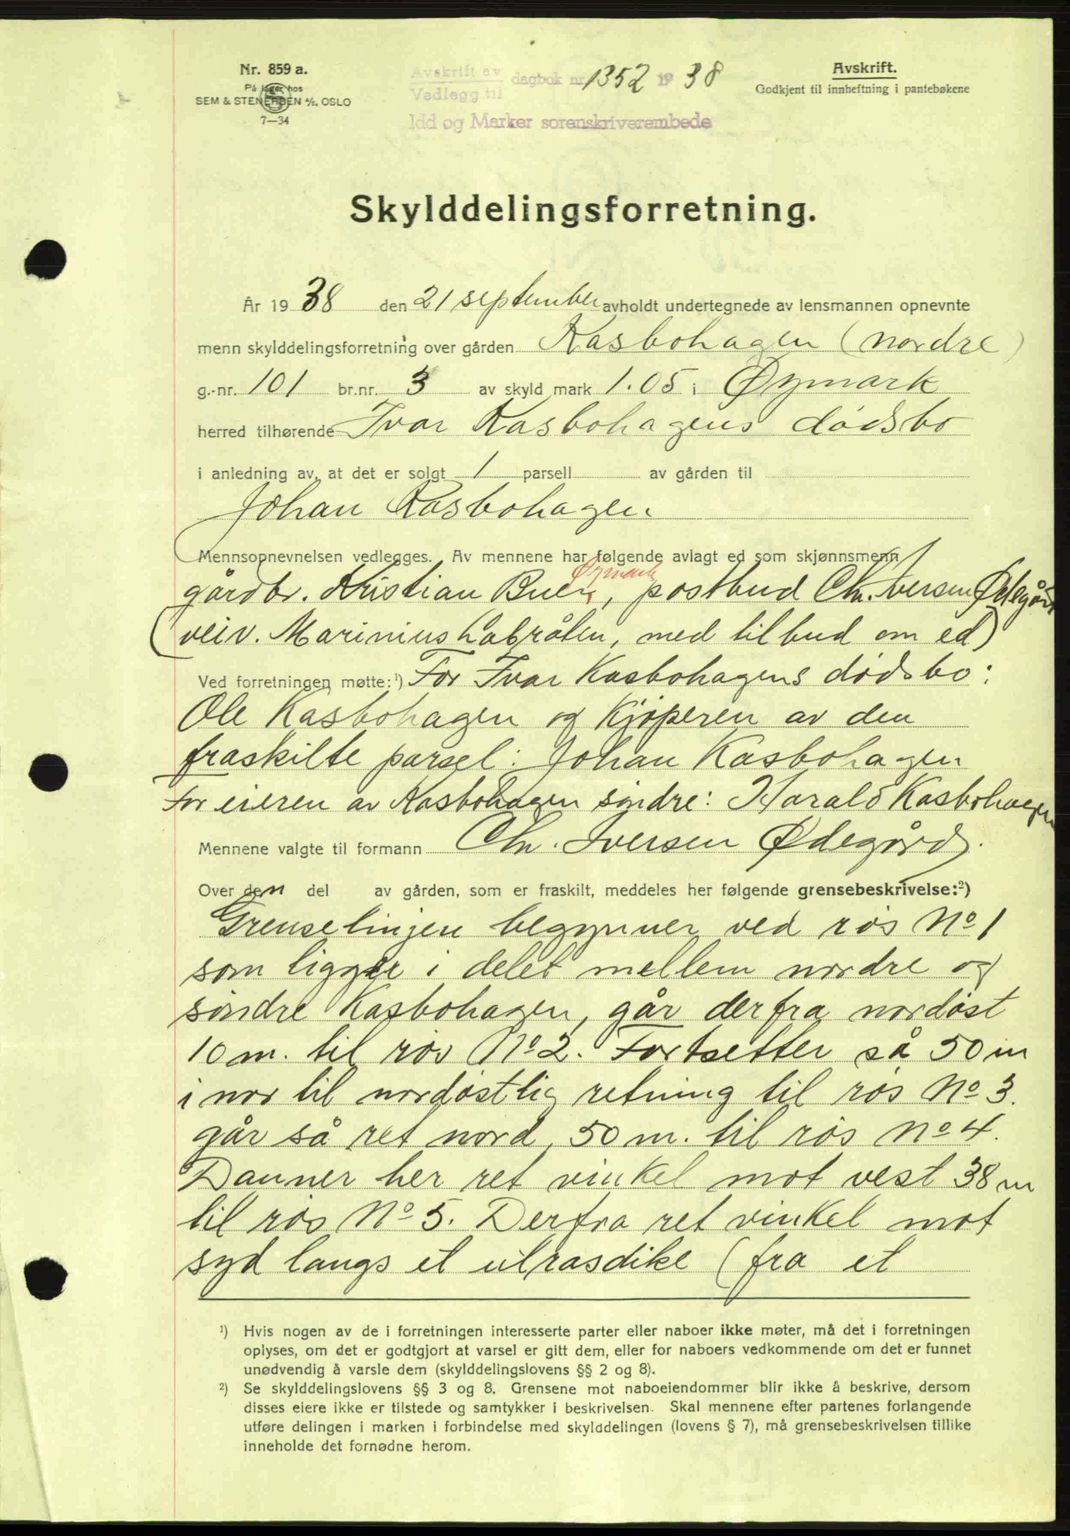 Nr. 859 a.
På lager hos
SEM & STENERSEN A/S, OSLO
7—34
Avskrift av
Vedlegg til
dagbok nr. 1352 1938
Idd og Marker sorenskriverembede
Avskrift.
Godkjent til innheftning i pantebøkene
Skylddelingsforretning.
År 1938 den 21 september avholdt undertegnede av lensmannen opnevnte
menn skylddelingsforretning over gården Kasbohagen (nordre)
g.-nr. 101 br.nr. 3 av skyld mark 1.05 i Øymark
herred tilhørende Ivar Kasbohagens dødsbo
i anledning av, at det er solgt 1 parsell av gården til
Johan Kasbohagen
Mennsopnevnelsen vedlegges. Av mennene har følgende avlagt ed som skjønnsmenn
Øymark
gårdbr. Kristian Buer, postbud Chr. Iversen Ødegård
(veiv. Marinius Labråten, med tilbud om ed)
Ved forretningen møtte:¹) For Ivar Kasbohagens dødsbo:
Ole Kasbohagen og kjøperen av den
fraskilte parsel: Johan Kasbohagen
For eieren av Kasbohagen søndre: Harald Kasbohagen
Mennene valgte til formann Chr. Iversen Ødegård.
Over den del av gården, som er fraskilt, meddeles her følgende grensebeskrivelse:²)
Grenselinjen begynner ved røs No 1
som ligger i delet mellem nordre og
søndre Kasbohagen, går derfra nordøst
10 m. til røs No 2. Fortsetter så 50 m
i nor til nordøstlig retning til røs No 3.
går så ret nord, 50 m. til røs No 4.
Danner her ret vinkel mot vest 38 m
til røs No 5. Derfra ret vinkel mot
syd langs et utrasdike (fra et
¹) Hvis nogen av de i forretningen interesserte parter eller naboer ikke møter, må det i forretningen
oplyses, om det er godtgjort at varsel er gitt dem, eller for naboers vedkommende om det er funnet
unødvendig å varsle dem (skylddelingslovens §§ 2 og 8).
²) Se skylddelingslovens §§ 3 og 8. Grensene mot naboeiendommer blir ikke å beskrive, dersom
disses eiere ikke er tilstede og samtykker i beskrivelsen. Skal mennene efter partenes forlangende
utføre delingen i marken i forbindelse med skylddelingen (lovens § 7), må grensebeskrivelsen tillike
inneholde det fornødne herom.